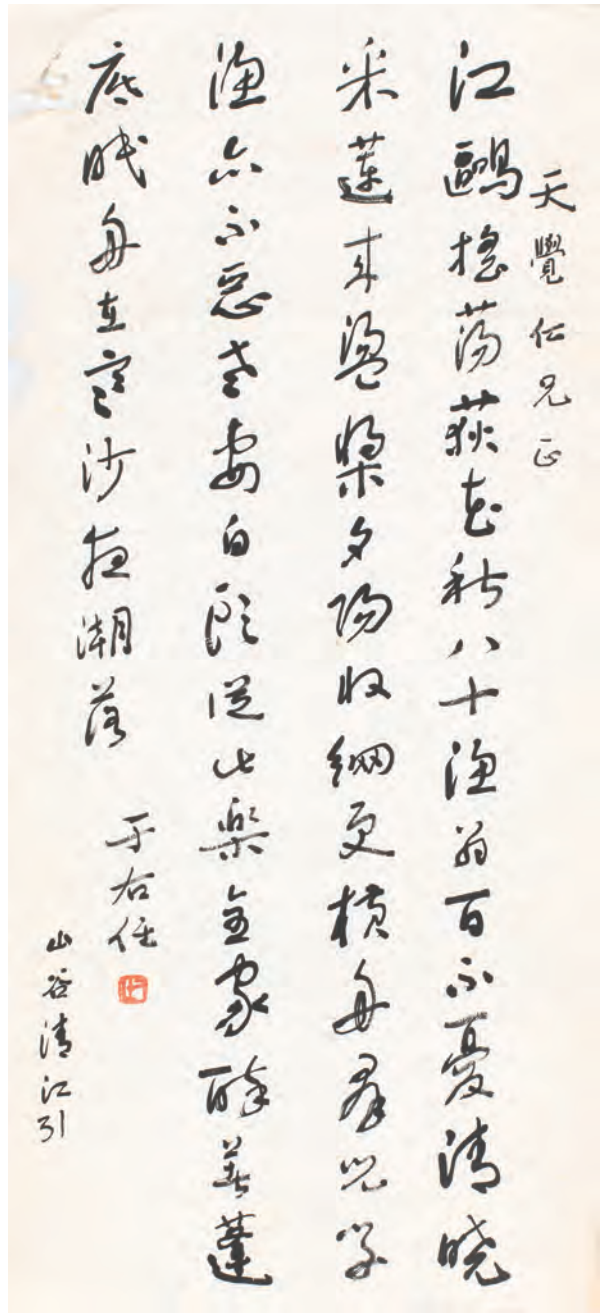 天覺仁兄正
江鷗搖蕩荻花秋八十漁翁百不憂清曉
采蓮來盪槳夕陽收網更橫舟羣兒學
漁亦不惡老妻白頭從此樂全家醉著蓬
底眠舟在寒沙夜潮落
于右任
山谷清江引